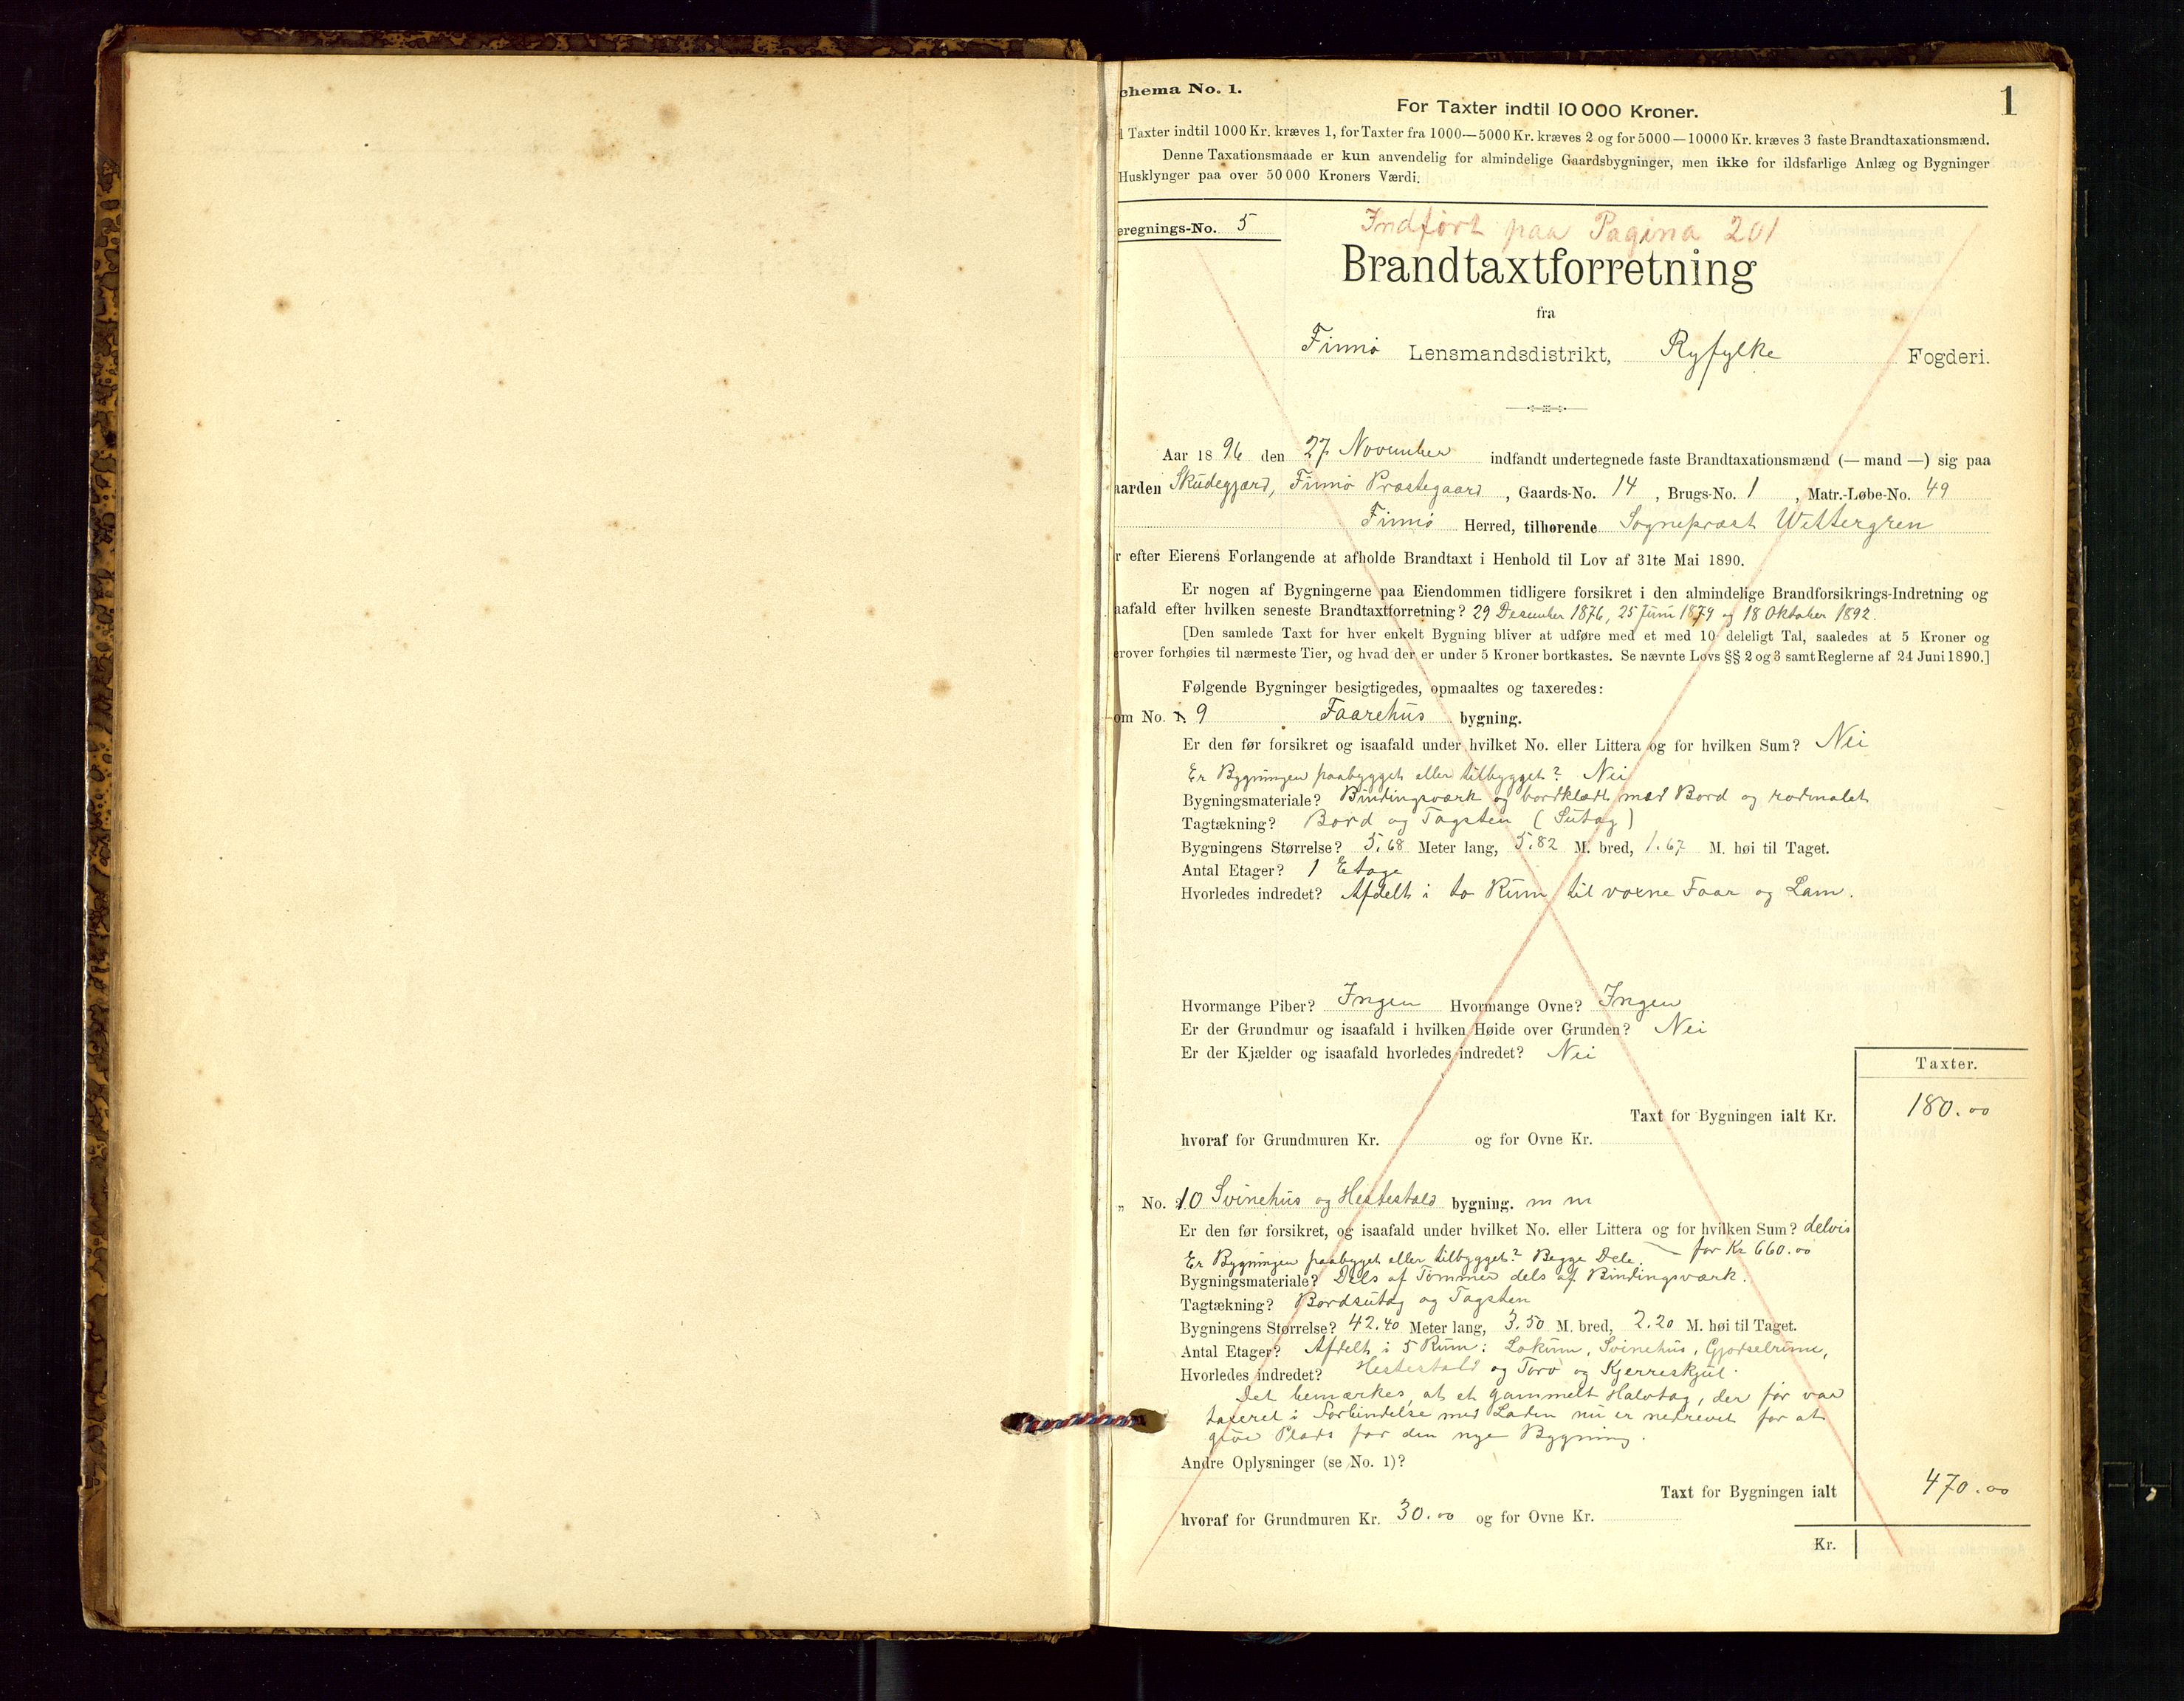 1
chema No. 1.
For Taxter indtil 10 000 Kroner.
Taxter indtil 1000 Kr. kræves 1, for Taxter fra 1000—5000 Kr. kræves 2 og for 5000—10000 Kr. kræves 3 faste Brandtaxationsmænd.
Denne Taxationsmaade er kun anvendelig for almindelige Gaardsbygninger, men ikke for ildsfarlige Anlæg og Bygninger
Husklynger paa over 50 000 Kroners Værdi.
eregnings-No. 5
Indført paa Pagina 201
Brandtaxtforretning
fra
Finnø Lensmandsdistrikt, Ryfylke Fogderi.
Aar 1896 den 27 November indfandt undertegnede faste Brandtaxationsmænd (— mand —) sig paa
aarden Skudegjærd, Finnø Præstegaard, Gaards-No. 14, Brugs-No. 1, Matr.-Løbe-No. 49
Finnø Herred, tilhørende Sognepræst Wettergren
r efter Eierens Forlangende at afholde Brandtaxt i Henhold til Lov af 31te Mai 1890.
Er nogen af Bygningerne paa Eiendommen tidligere forsikret i den almindelige Brandforsikrings-Indretning og
aafald efter hvilken seneste Brandtaxtforretning? 29 Desember 1876, 25 Juni 1879 og 18 Oktober 1892.
[Den samlede Taxt for hver enkelt Bygning bliver at udføre med et med 10 deleligt Tal, saaledes at 5 Kroner og
rover forhøies til nærmeste Tier, og hvad der er under 5 Kroner bortkastes. Se nævnte Lovs §§ 2 og 3 samt Reglerne af 24 Juni 1890.]
Følgende Bygninger besigtigedes, opmaaltes og taxeredes:
om No. 9 Faarehus bygning.
Er den før forsikret og isaafald under hvilket No. eller Littera og for hvilken Sum? Nei
Er Bygningen paabygget eller tilbygget? Nei
Bygningsmateriale? Bindingsværk og bordklædt med Bord og rødmalet
Tagtækning? Bord og Tagsten (Sutag)
Bygningens Størrelse? 5.68 Meter lang, 5.82 M. bred, 1.67 M. høi til Taget.
Antal Etager? 1 Etage
Hvorledes indredet? Afdelt i to Rum til voxne Faar og Lam.
Hvormange Piber? Ingen Hvormange Ovne? Ingen
Er der Grundmur og isaafald i hvilken Høide over Grunden? Nei
Er der Kjælder og isaafald hvorledes indredet? Nei
Taxter.
Taxt for Bygningen ialt Kr. 180.00
hvoraf for Grundmuren Kr. og for Ovne Kr.
„ No. 10 Svinehus og Hestestald bygning. m m
Er den før forsikret, og isaafald under hvilket No. eller Littera og for hvilken Sum? delvis
Er Bygningen paabyget eller tilbygget? Begge Dele. — for Kr 660.00
Bygningsmateriale? Dels af Tømmer dels af Bindingsværk.
Tagtækning? Bordsutag og Tagsten
Bygningens Størrelse? 42.40 Meter lang, 3.50 M. bred, 2.20 M. høi til Taget.
Antal Etager? Afdelt i 5 Rum: Lokum, Svinehus, Gjødselrum,
Hvorledes indredet? Hestestald og Torv og Kjerreskjul.
Det bemærkes, at et gammelt Halvtag, der før var
taxeret i Forbindelse med Laden nu er nedrevet for at
give Plads for den nye Bygning.
Andre Oplysninger (se No. 1)?
Taxt for Bygningen ialt 470.00
hvoraf for Grundmuren Kr. 30.00 og for Ovne Kr.
Kr.